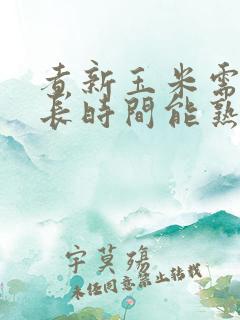 煮新玉米需
長時間能熟
宇莫殤
未经同意禁止转载